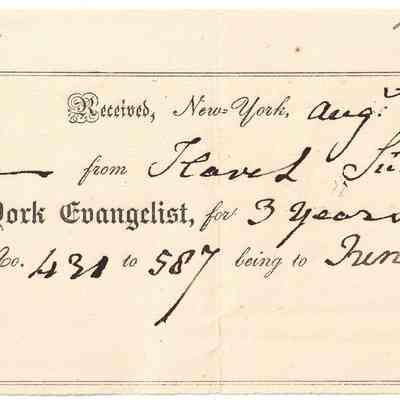 Received, New-York, Aug.
from Flavel
York Evangelist, for 3 Years
No. 431 to 587 being to June